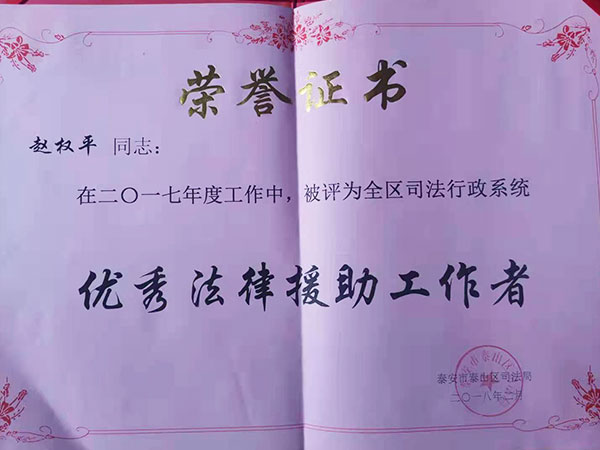 荣誉证书
赵权平 同志：
在二〇一七年度工作中，被评为全区司法行政系统
优秀法律援助工作者
泰安市泰山区司法局
二〇一八年二月